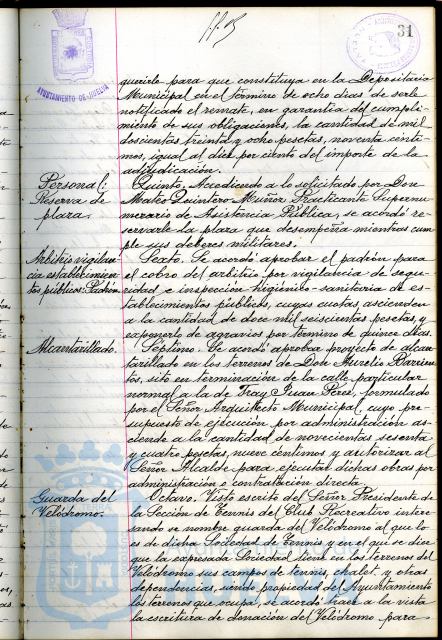 31
AYUNTAMIENTO DE HUELVA
querirle para que constituya en la Depositaria
Municipal en el término de ocho dias de serle
notificado el remate, en garantia del cumpli-
miento de sus obligaciones, la cantidad de mil
doscientas treinta y ocho pesetas, noventa centi-
mos, igual al diez por ciento del importe de la
adjudicación.
Personal:
Reserva de
plaza.
Quinto. Accediendo a lo solicitado por Don
Mateo Quintero Muñoz Practicante Supernu-
merario de Asistencia Pública, se acordó re-
servarle la plaza que desempeña mientras cum-
ple sus deberes militares.
Arbitrio vigilan-
cia establecimien-
tos públicos: Padrón
Sexto. Se acordó aprobar el padrón para
el cobro del arbitrio por vigilancia de segu-
ridad e inspección higiénico-sanitaria de es-
tablecimientos públicos, cuyas cuotas ascienden
a la cantidad de doce mil seiscientas pesetas, y
exponerlo de agravios por termino de quince dias.
Alcantarillado.
Séptimo. Se acordó aprobar proyecto de alcan-
tarillado en los terrenos de Don Aurelio Barrien-
tos, sito en terminación de la calle particular
normal a la de Fray Juan Pérez, formulado
por el Señor Arquitecto Municipal, cuyo pre-
supuesto de ejecución por administración as-
ciende a la cantidad de novecientas sesenta
y cuatro pesetas, nueve centimos y autorizar al
Señor Alcalde para ejecutar dichas obras por
administración o contratación directa.
Guarda del
Velódromo.
Octavo. Visto escrito del Señor Presidente de
la Sección de Tennis del Club Recreativo intere-
sando se nombre guarda del Velódromo al que lo
es de dicha Sociedad de Tennis y en el que se dice
que la expresada Sociedad tiene en los terrenos del
Velódromo sus campos de tennis, chalet y otras
dependencias, siendo propiedad del Ayuntamiento
los terrenos que ocupa, se acordó traer a la vista
la escritura de donación del Velódromo para